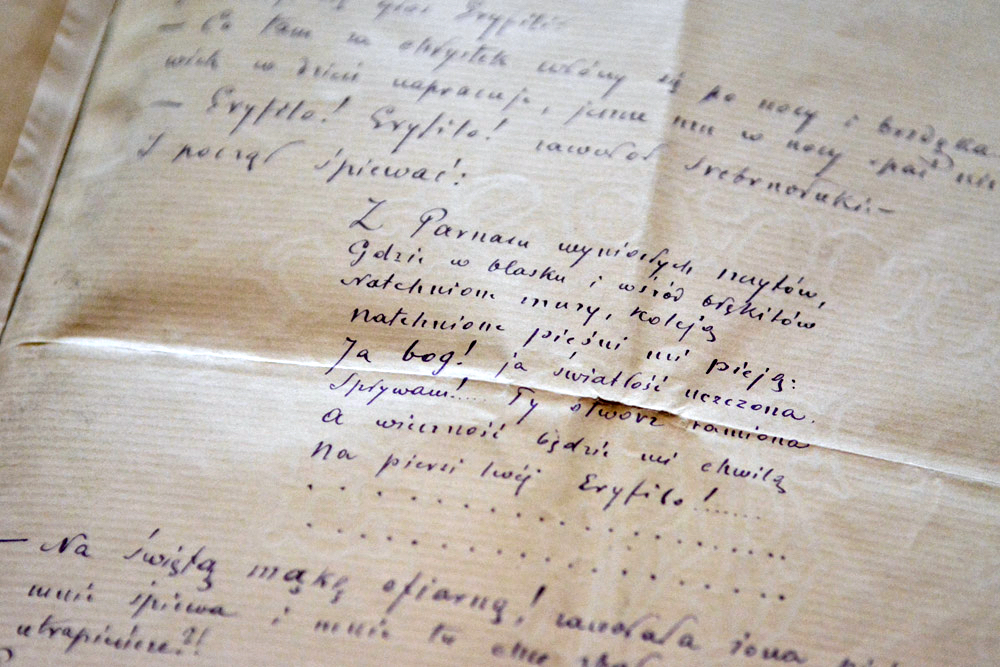 głos Eryfili:
— Co tam za obrystek włóczy się po nocy i brzdąka.
wiek w dzień napracuje, jeszcze mu w nocy spać nie
— Eryfilo! Eryfilo! zawołał srebrnołuki—
I począł śpiewać:
Z Parnasu wyniosłych szczytów,
Gdzie w blasku i wśród błękitów
Natchnione muzy, koleją
Natchnione pieśni mi pieją:
Ja bog! ja światłość uczczona.
Spływam!.... Ty otwórz ramiona
A wieczność będzie mi chwilą
Na piersi twéj Eryfilo!.......
— Na świętą mąkę ofiarną! zawołała żona
mnie śpiewa i mnie tu chce
utrapienie?!